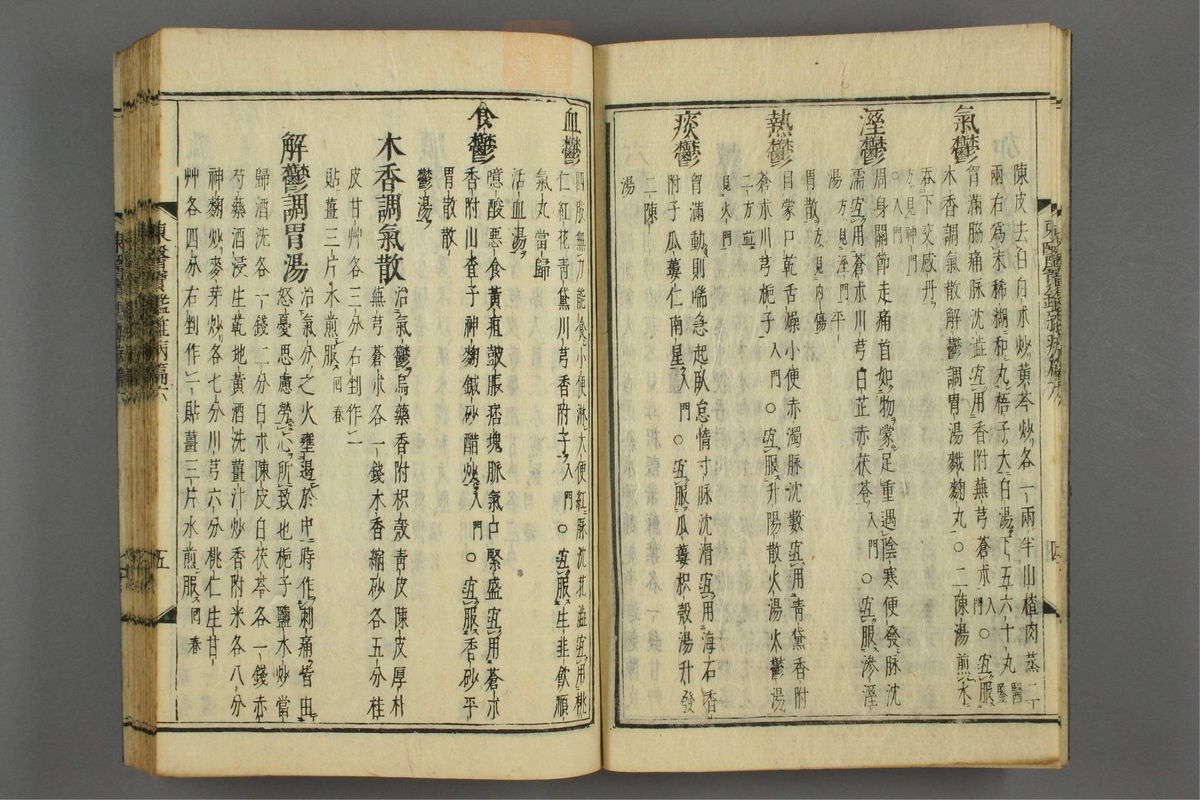 陳皮去白白朮炒黃芩炒各一兩半山楂肉蒸二
兩右爲末稀糊和丸梧子大白湯下五六十丸醫鑒
氣鬱
胷滿脇痛脉沈澁宜用香附蕪芎蒼朮入門○宜服
木香調氣散解鬱調胃湯㲄麴丸○二陳湯煎水
吞下交感丹
方見神門
○入門
濕鬱
周身關節走痛首如物蒙足重遇陰寒便發脉沈
濡宜用蒼朮川芎白芷赤茯苓入門○宜服滲濕
湯方見濕門平
胃散方見內傷
熱鬱
目蒙口乾舌燥小便赤濁脉沈數宜用青黛香附
蒼朮川芎梔子入門○宜服升陽散火湯火鬱湯
二方並
見火門
痰鬱
胷滿動則喘急起臥怠惰寸脉沈滑宜用海石香
附子瓜蔞仁南星入門○宜服瓜蔞枳殼湯升發
二陳
湯
東醫寶鑑雜病篇六
四
血鬱
四肢無力能食小便淋大便紅脉沈芤澁宜用桃
仁紅花青黛川芎香附子入門○宜服生韭飮順
氣丸當歸
活血湯
食鬱
噫酸惡食黃疸皷脹痞塊脈氣口緊盛宜用蒼朮
香附山査子神麴鍼砂醋炒入門○宜服香砂平
胃散散
鬱湯
木香調氣散
治氣鬱烏藥香附枳殼靑皮陳皮厚朴
蕪芎蒼朮各一錢木香縮砂各五分桂
皮甘艸各三分右剉作一
貼薑三片水煎服回春
解鬱調胃湯
治氣分之火壅遏於中時作刺痛皆由
怒憂思慮勞心所致也梔子鹽水炒當
歸酒洗各一錢二分白朮陳皮白茯苓各一錢赤
芍藥酒浸生乾地黃酒洗薑汁炒香附米各八分
神麴炒麥芽炒各七分川芎六分桃仁生甘
艸各四分右剉作一貼薑三片水煎服回春
東醫寶鑑雜病篇六
五